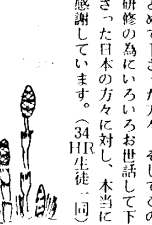 とめて下さった方々、そしてこの
研修の為にいろいろお世話して下
さった日本の方々に対し、本当に
感謝しています。(34HR生徒一同)